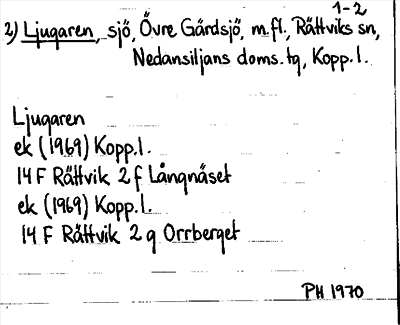 1-2
2) Ljugaren, sjö, Övre Gärdsjö, m.fl., Rättviks sn,
Nedansiljans doms.tg, Kopp.l.
Ljugaren
ek (1969) Kopp.l.
14 F Rättvik 2 f Långnäset
ek (1969) Kopp.l.
14 F Rättvik 2 g Orrberget
PH 1970